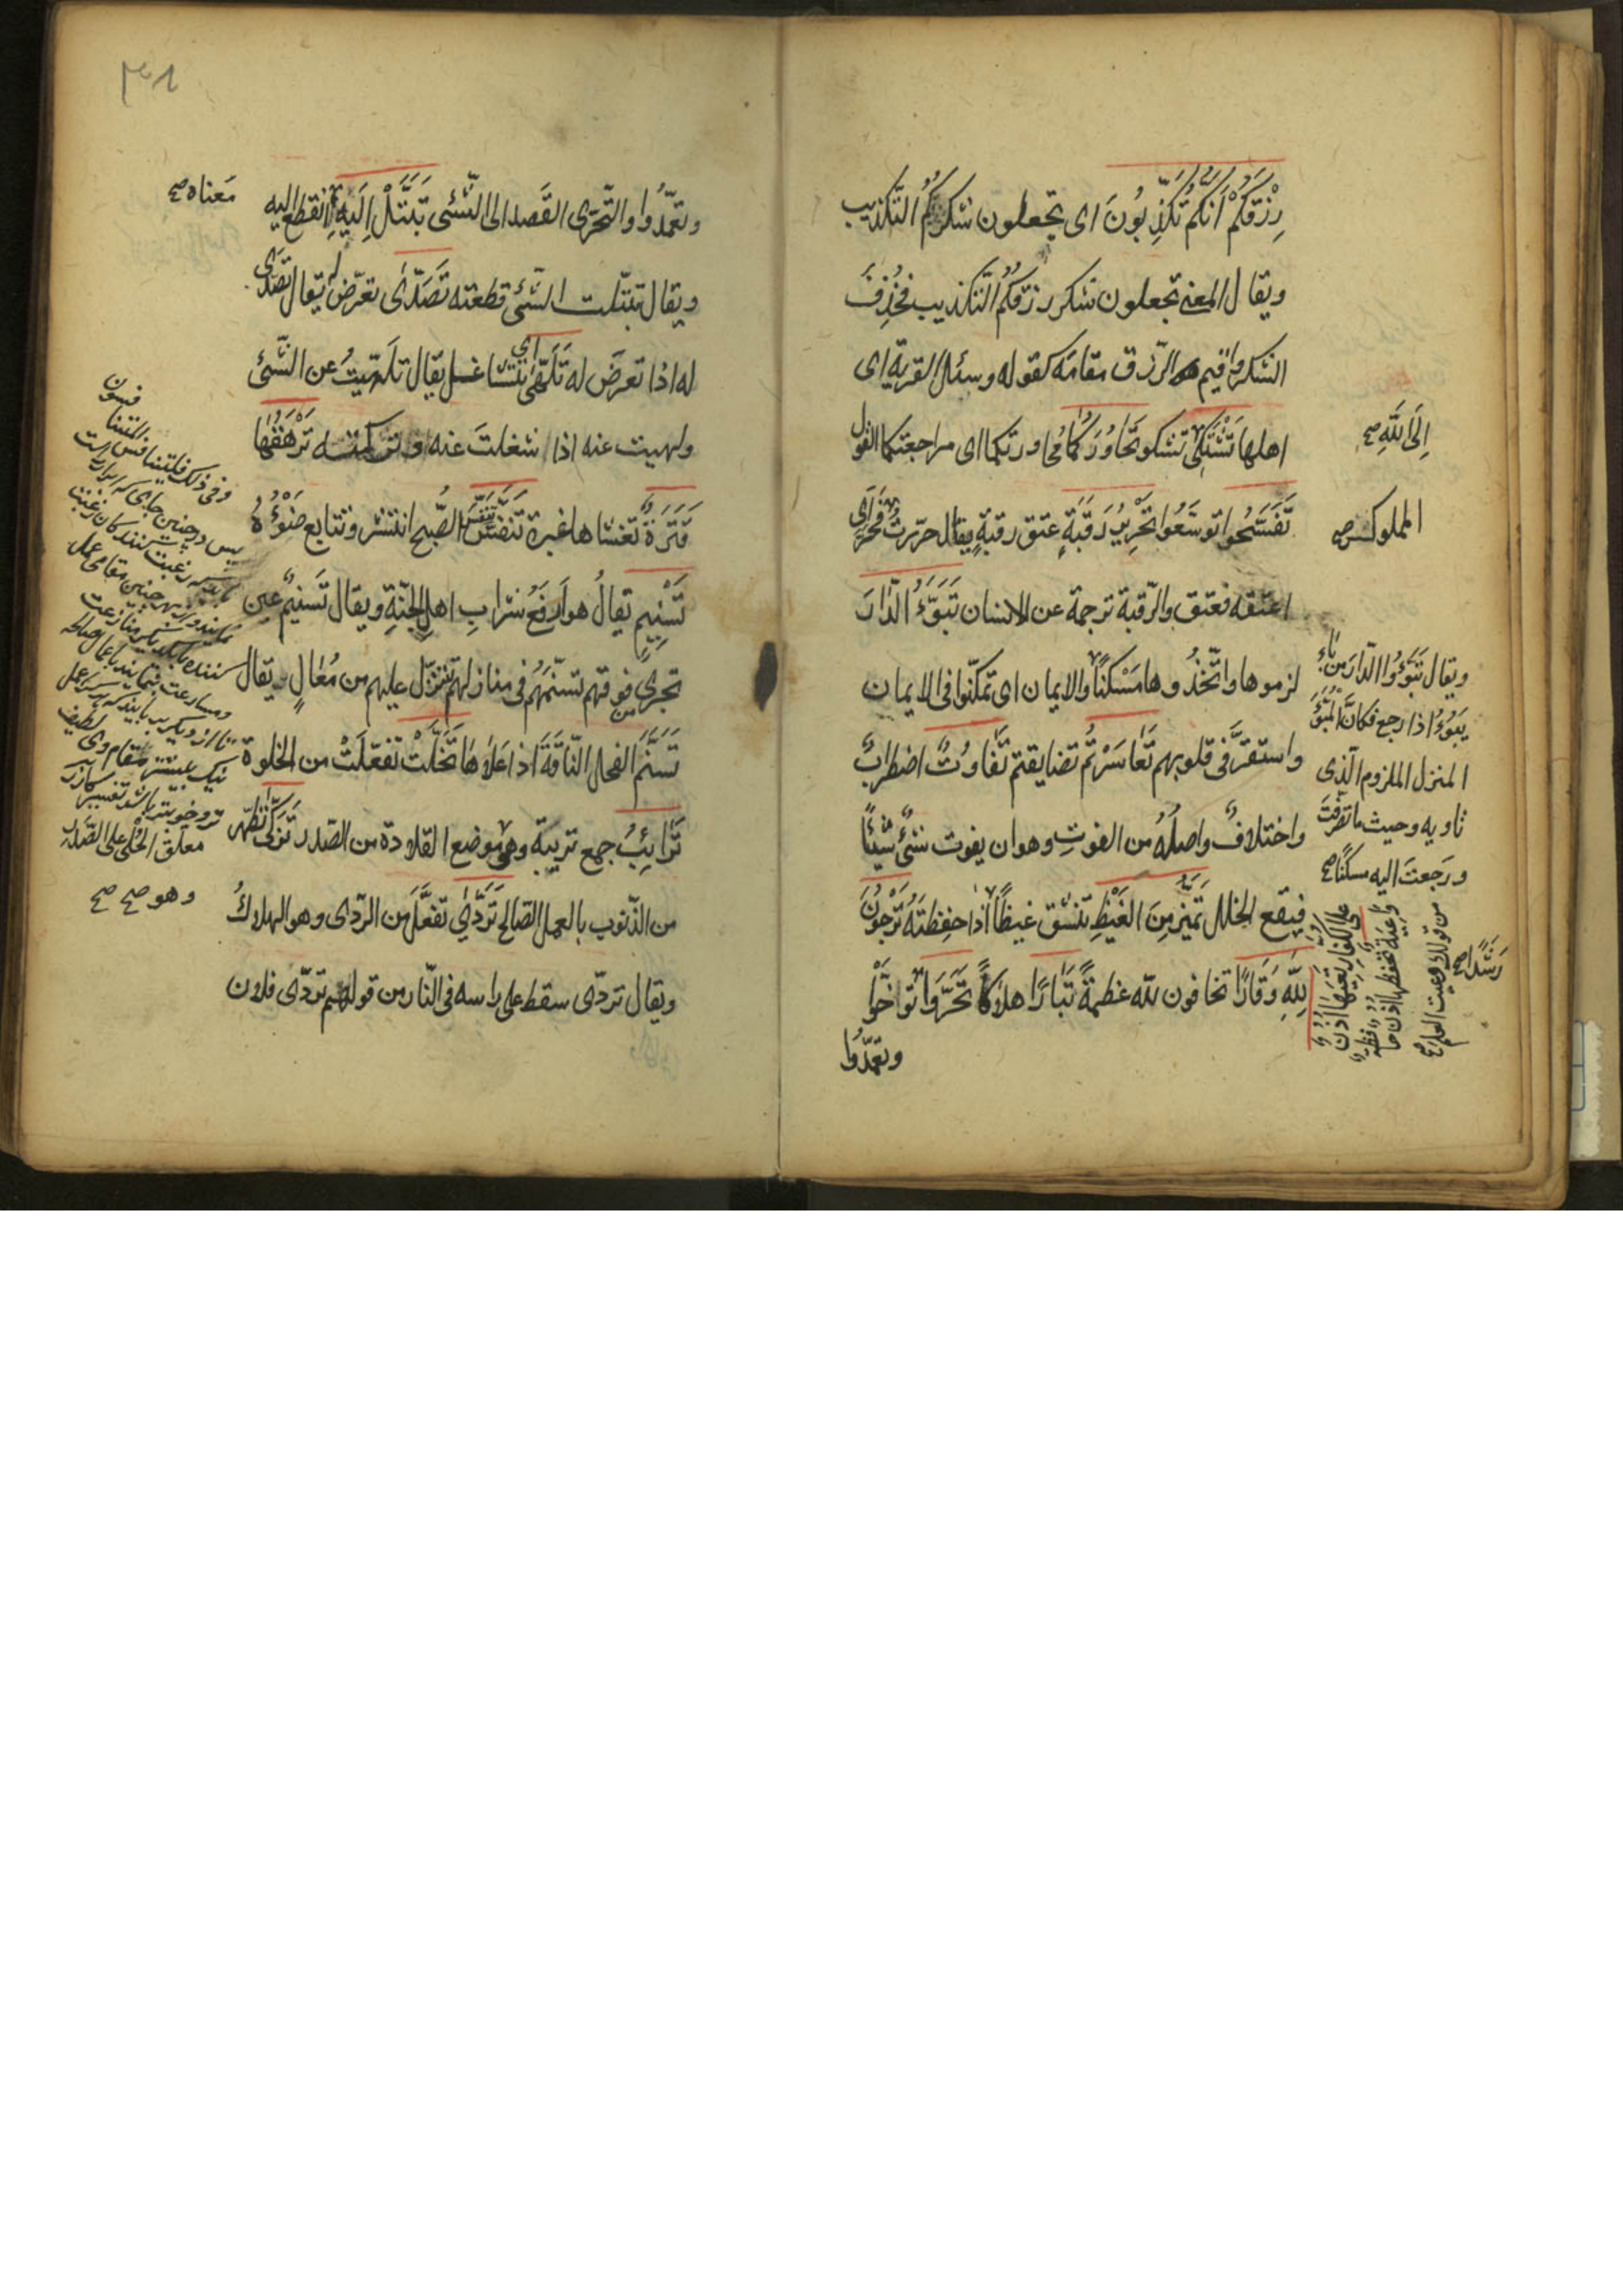 رِزْقَكُمْ أَنَّكُمْ تُكَذِّبُونَ اى تجعلون شكركُمُ التّكذيب
ويقال المعنى تجعلون شكر رزقكُمُ التّكذيب فحُذِفَ
الشكر واقيم الرّزق مقامَه كقوله وسئل القرية اى
اهلها تَشْتَكِىٓ تشكو تَحَاوُرَكُمَا محاورتكما اى مراجعتكما القول
إِلَى اللّٰهِ صح
تَفَسَّحُوا توسّعُوا تَحْرِيرُ رَقَبَةٍ عتق رقبةٍ يقال حرّرت فَحَرَّ اى
المملوك صح
اعتقه فعتق والرّقبة ترجمة عن الانسان تَبَوَّءُ الدَّارَ
لزموها واتّخذُوها مَسْكنًا والايمان اى تمكّنوا فى الايمان
واستقرَّ فى قلوبهم تَعَاسَرْتُمْ تضايقتم تَفَاوُتٌ اضطرابٌ
واختلافٌ واصلُهُ من الفوتِ وهو ان يفوت شئٌ شيئًا
فيقع الخلل تَمَيَّزُ مِنَ الغَيْظِ تنشق غيظًا اذا حفظتَهُ تَرْجُونَ
لِلّٰهِ وَقَارًا تخافون للّه عظمةً تَبَارًا هلاكًا تَحَرَّوْا تَوَاخَّوْا
وتعمّدُوا
ويقال تَبَوَّؤُا الدّارَ من بَاءَ
يَبُوْءُ اذا رجع فكانَّ المُبَوَّءَ
المنزل الملزوم الّذى
ثاويه وحيث ما تصرّفتَ
ورَجعتَ اليه مسكنًا صح
تَعِيَهَا أُذُنٌ
وَاعِيَةٌ تحفظها اذن حافظة
من قولك وعيت العلم صح
رَشَدًا صح
وتعمّدُوا والتّحرّى القَصد الى الشّئى تَبَتَّلْ إِلَيْهِ انقطع اليه
مَعناه صح
ويقال تبتّلت الشّئى قطعته تَصَدّٰى تعرّض يقال تصدّى
له اذا تعرضَ له تَلَهّٰى اى تتشاغل يقال تلهّيتُ عن الشّئ
ولهيت عنه اذا شغلتَ عنه وتركته تَرْهَقُهَا
قَتَرَةٌ تغشاها غبرة تَنَفَّسَ الصُّبح انتشر وتتابع ضَوْؤُهُ
تَسْنِيمٍ يقالُ هو أرفَعُ شرابِ اهل الجنّةِ ويقال تَسْنِيمٌ عين
تجرى من فوقهم تسنّمهُمْ فى منازلهم تنزّل عليهم من مُعَالٍ يقال
تَسَنَّمَ الفحل النّاقةَ اذا عَلَاهَا تَخَلَّتْ تفعّلَتْ من الخلوة
تَرَائِبُ جمع تريبة وهى موضع القلادة من الصّدر تَزَكّٰى تطهّر
من الذّنوب بالعمل الصّالح تَرَدّٰى تفعَّلَ من الرّدى وهو الهلاكُ
ويقال تردّى سقط على راسه فى النّار من قولهم تردّى فلان
وفى ذلك فليتنافس المتنافسون
معلّق الحُلى على الصَّدر
وهو صح صح